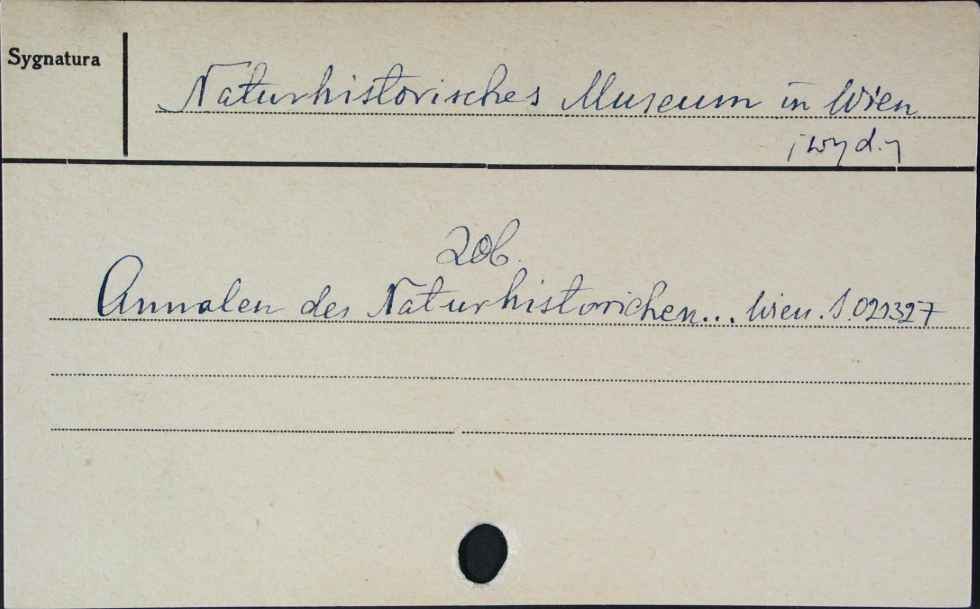 Sygnatura
Naturhistorisches Museum in Wien
[wyd.]
Zob.
Annalen des Naturhistorichen... Wien. S.021327